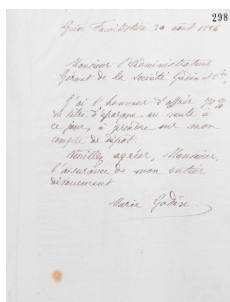 298
Guise Familistère 20 août 1886
Monsieur l'Administrateur
Gérant de la Société Godin & Cie
J'ai l'honneur d'offrir
de titre d'épargne en vente à
ce jour, à prendre sur mon
compte de dépôt.
Veuillez agréer, Monsieur,
l'assurance de mon entier
dévouement
Marie Godin